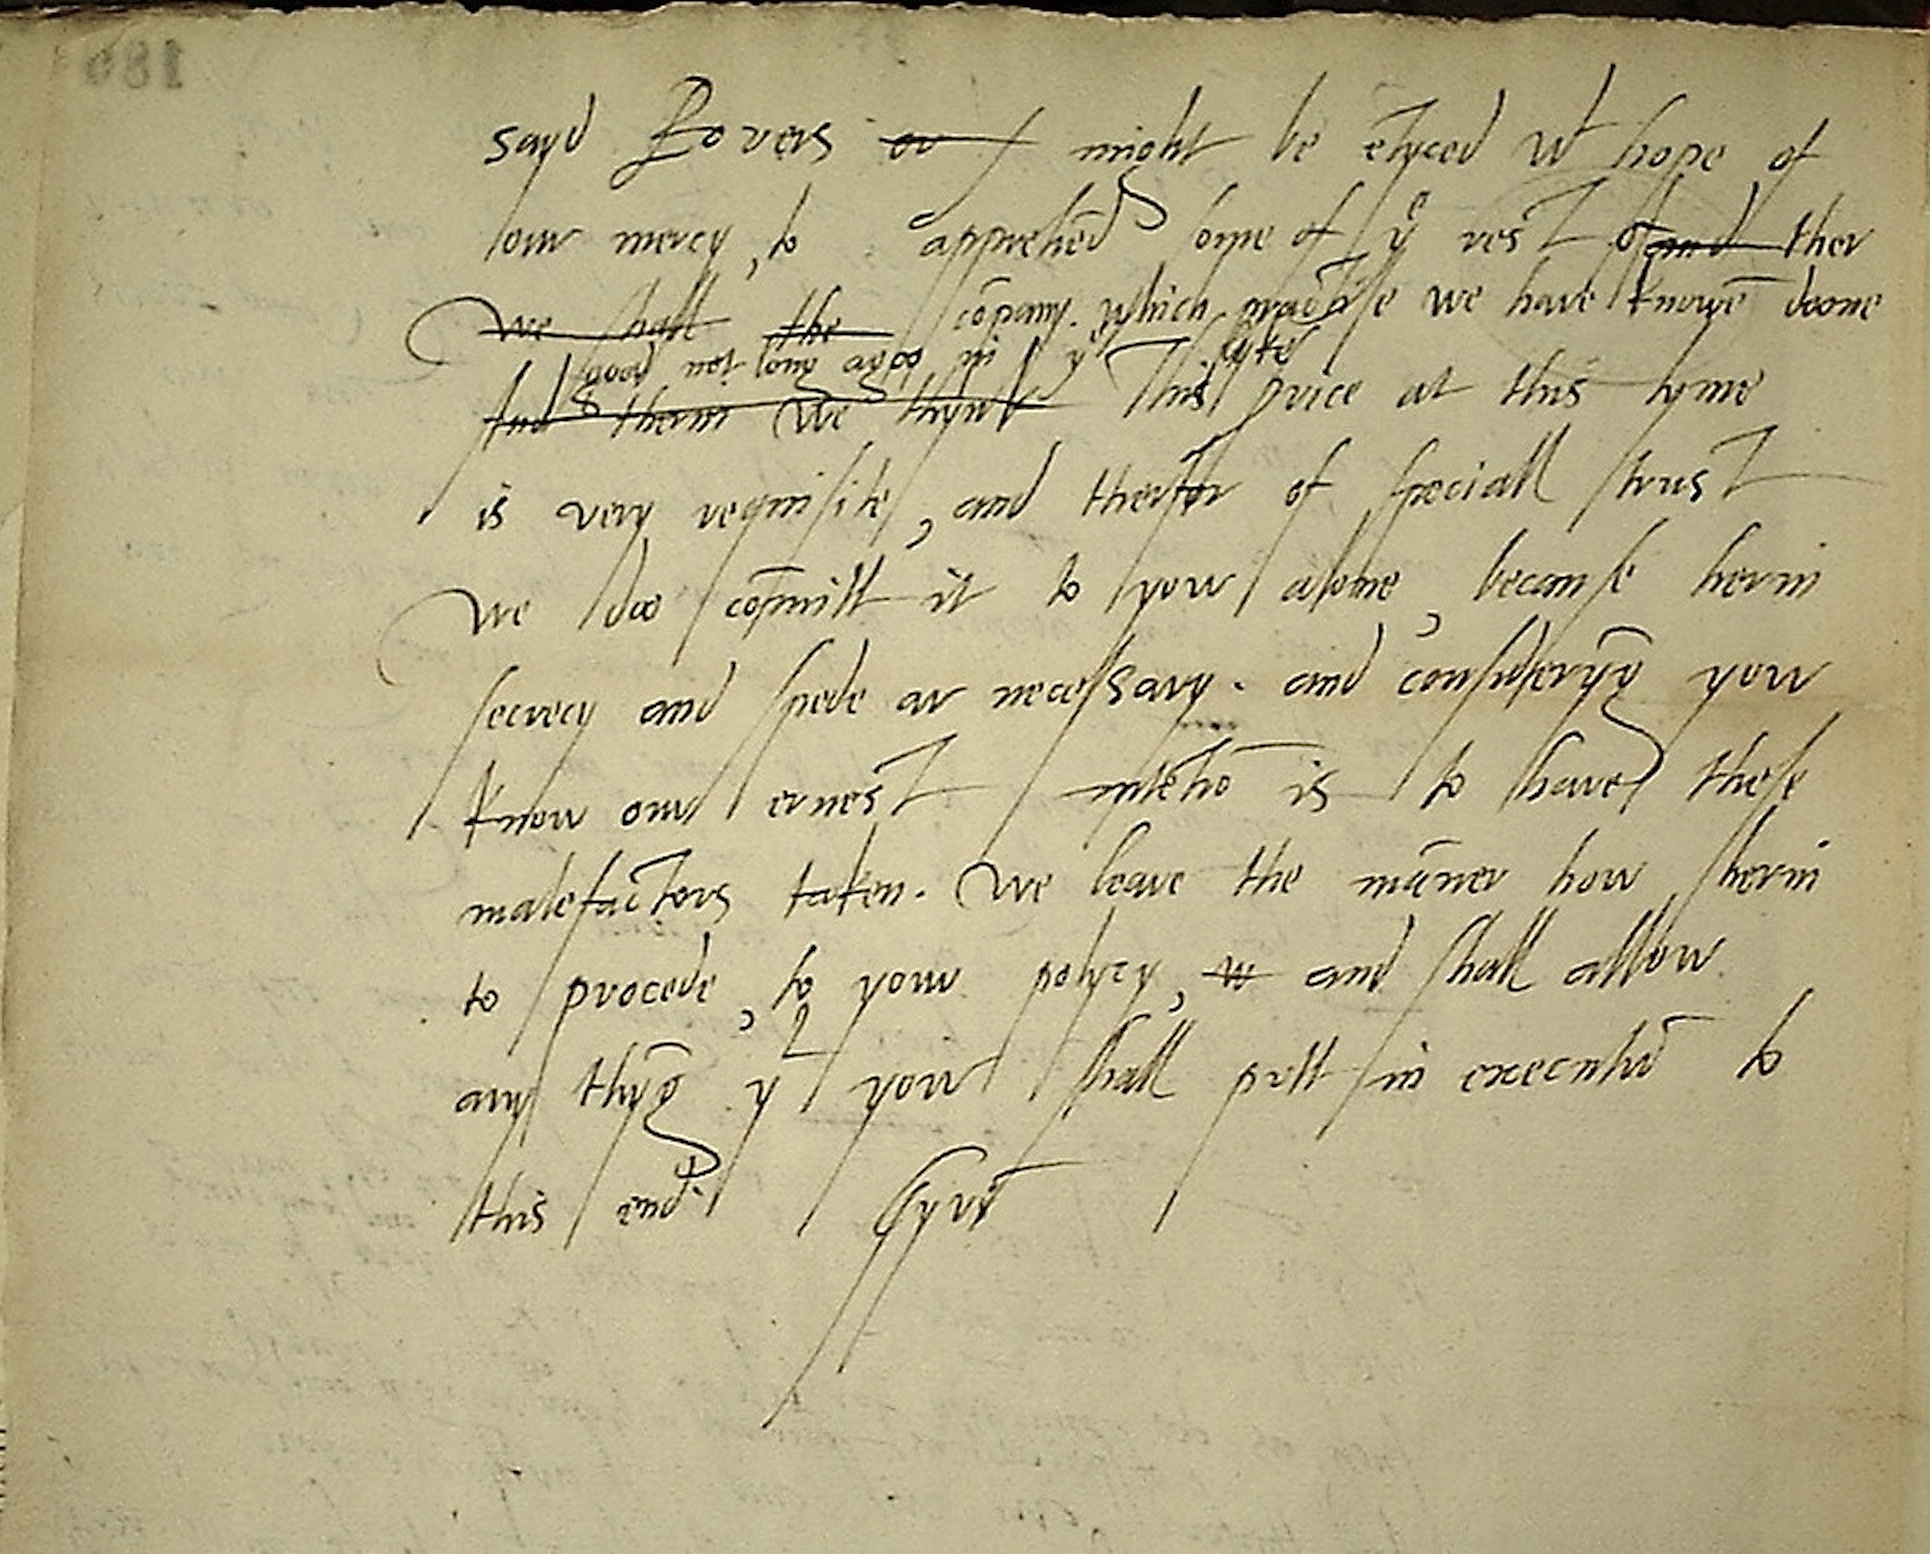 sayd Rovers or might be ētyced wt hope of
our mercy, to apprehēd some of ye rest of and ther
we shall the cōpany. which practise we have knowē doone
good not long agoo in ye lyke
And therin we thynk This price at this tyme
is very requisite, and therfor of speciall trust
we doo cōmitt it to yow alone, because herin
secrecy and spede ar necessary. and consyderyṉg yow
know our ernest intētiō is to have these
malefactors taken. We leave the māner how herin
to procede, to your polycy, w and shall allow
any thyḡ yt yow shall putt in executiō to
this end.